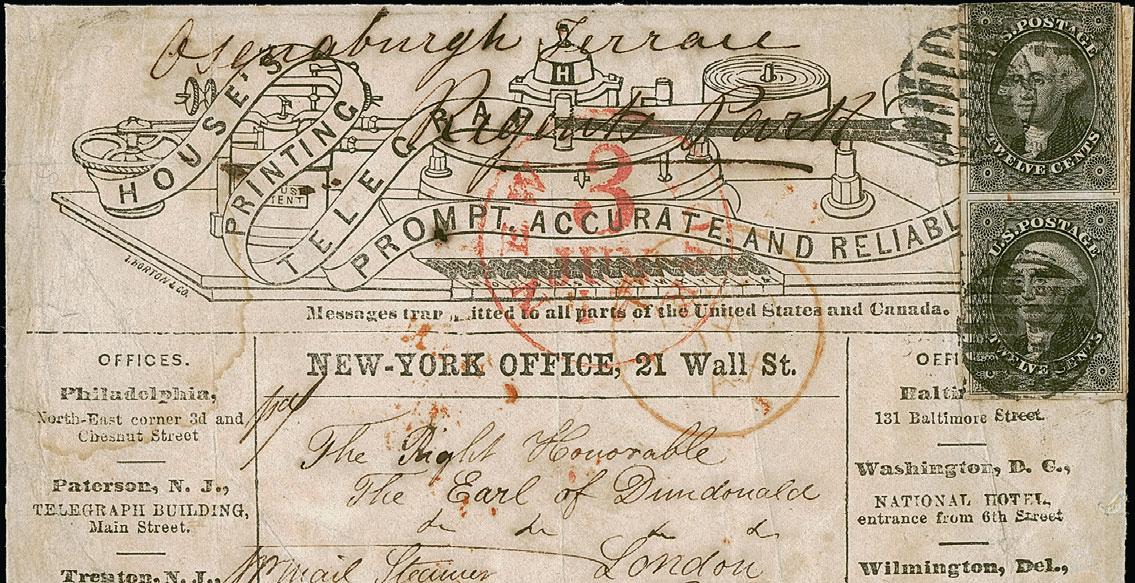 Osenaburgh Terrace
Regents Park
HOUSE'S
PRINTING
TELEGRAPH
PROMPT, ACCURATE AND RELIABL
H
3
NEW
U.S. POSTAGE
TWELVE CENTS
U.S. POSTAGE
TWELVE CENTS
T. HORTON & CO.
Messages tran itted to all parts of the United States and Canada.
NEW-YORK OFFICE, 21 Wall St.
OFFICES.
Philadelphia,
North-East corner 3d and
Chesnut Street
Paterson, N. J.,
TELEGRAPH BUILDING,
Main Street.
Trenton, N. J.,
The Right Honorable
The Earl of Dundonald
London
pr Mail Steamer
OFFI
Balti
131 Baltimore Street.
Washington, D. C.,
NATIONAL HOTEL,
entrance from 6th Street
Wilmington, Del.,